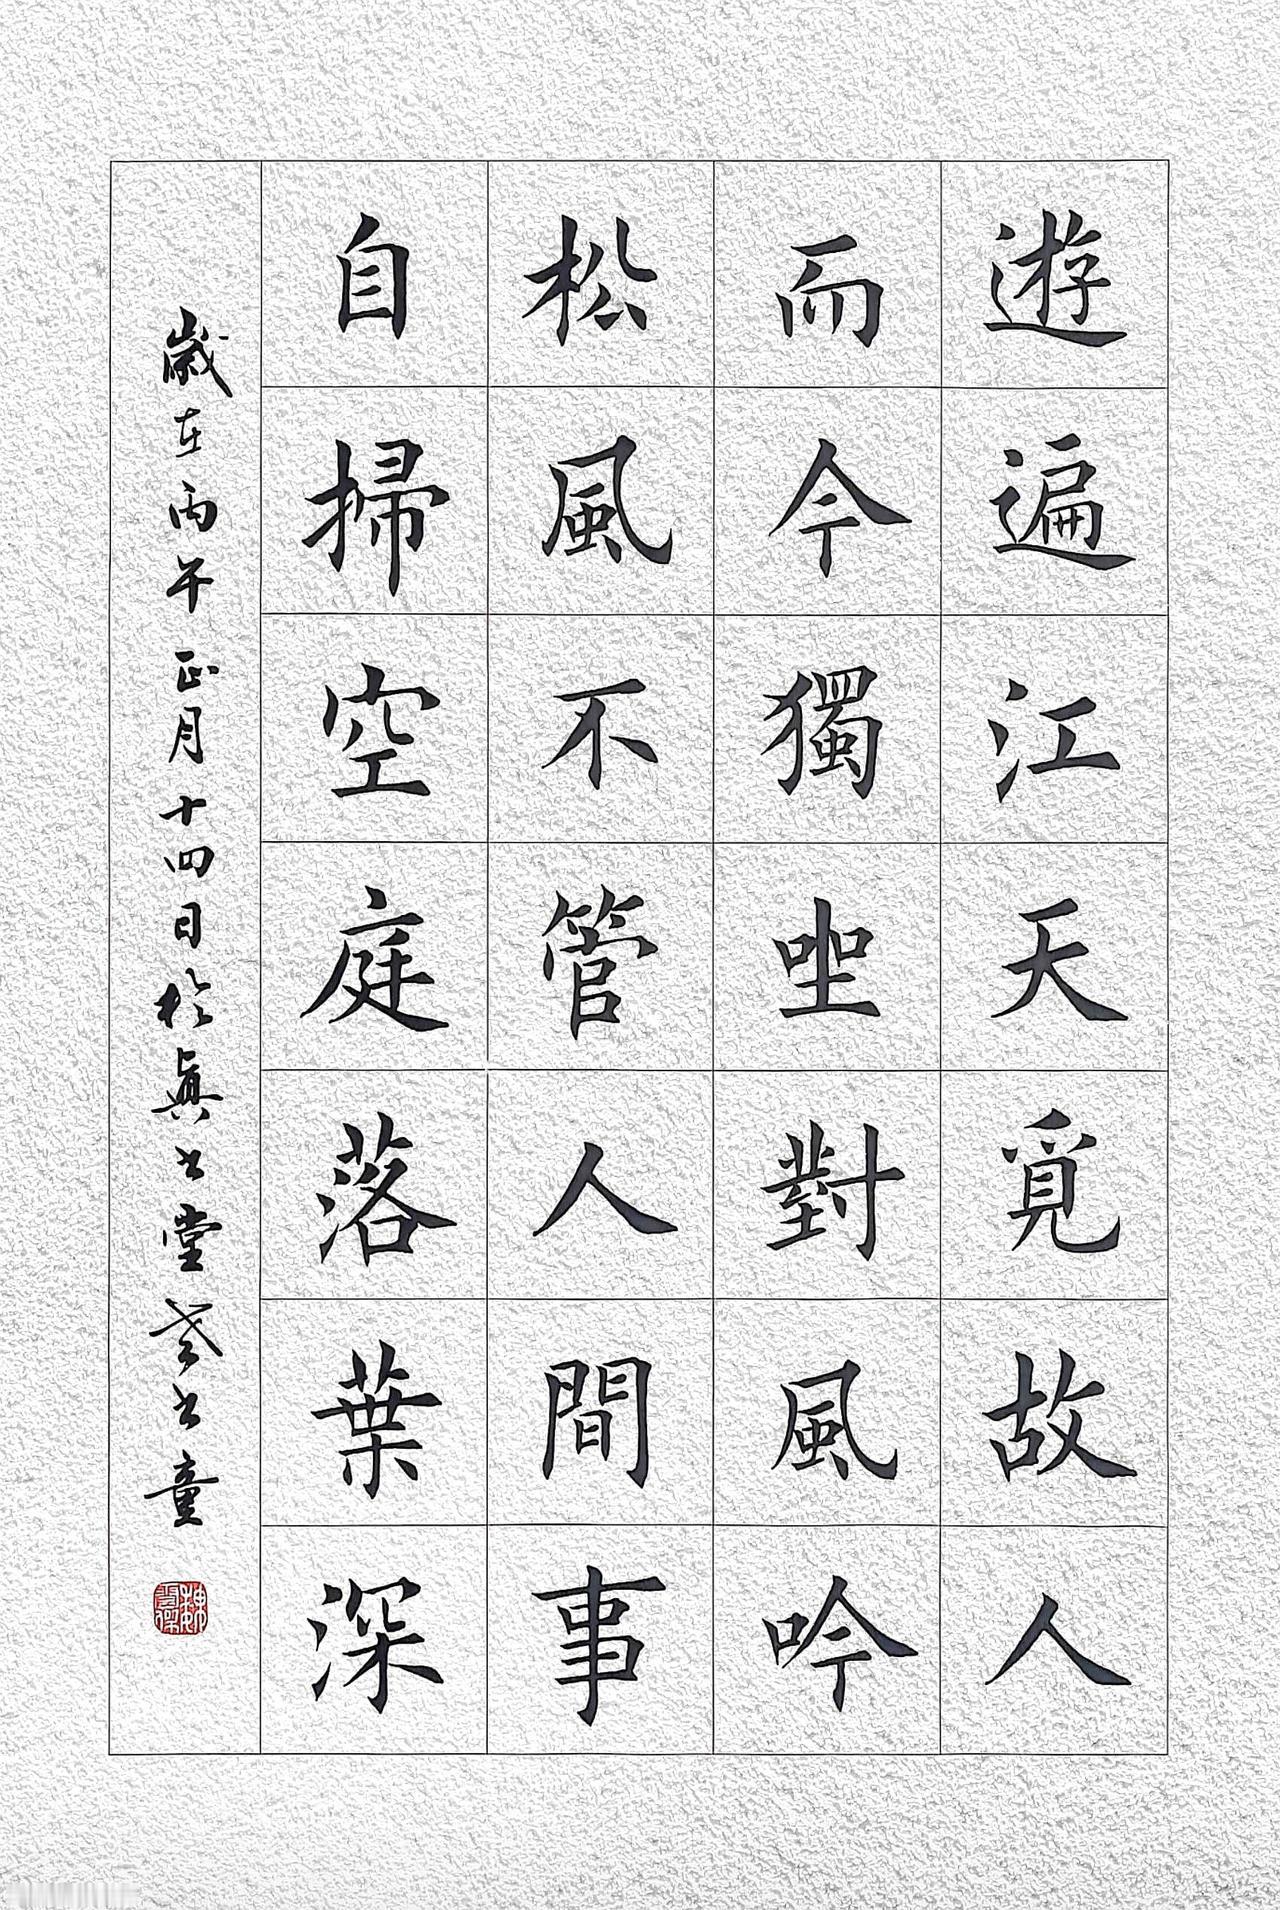 遊遍江天覓故人
而今獨坐對風吟
松風不管人間事
自掃空庭落葉深
歲在丙午正月十四日於真书堂老书童